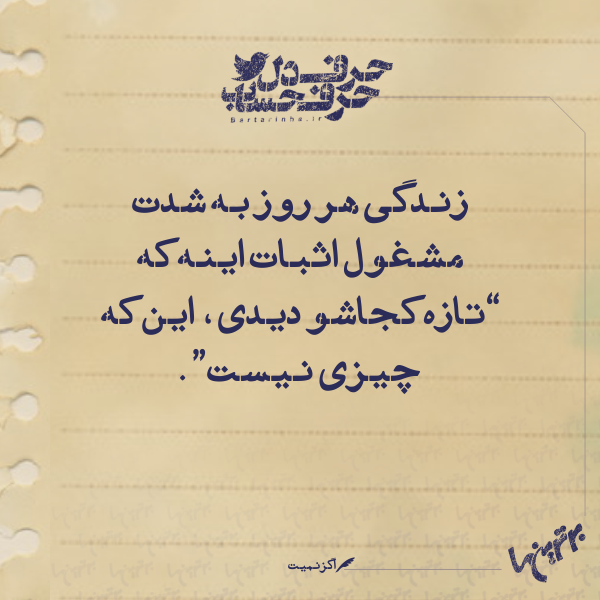 حرف دل
حرف حساب
Bartarinha.ir
زندگی هر روز به شدت
مشغول اثبات اینه که
“تازه کجاشو دیدی، این که
چیزی نیست”.
اگزنمیت
برترین‌ها